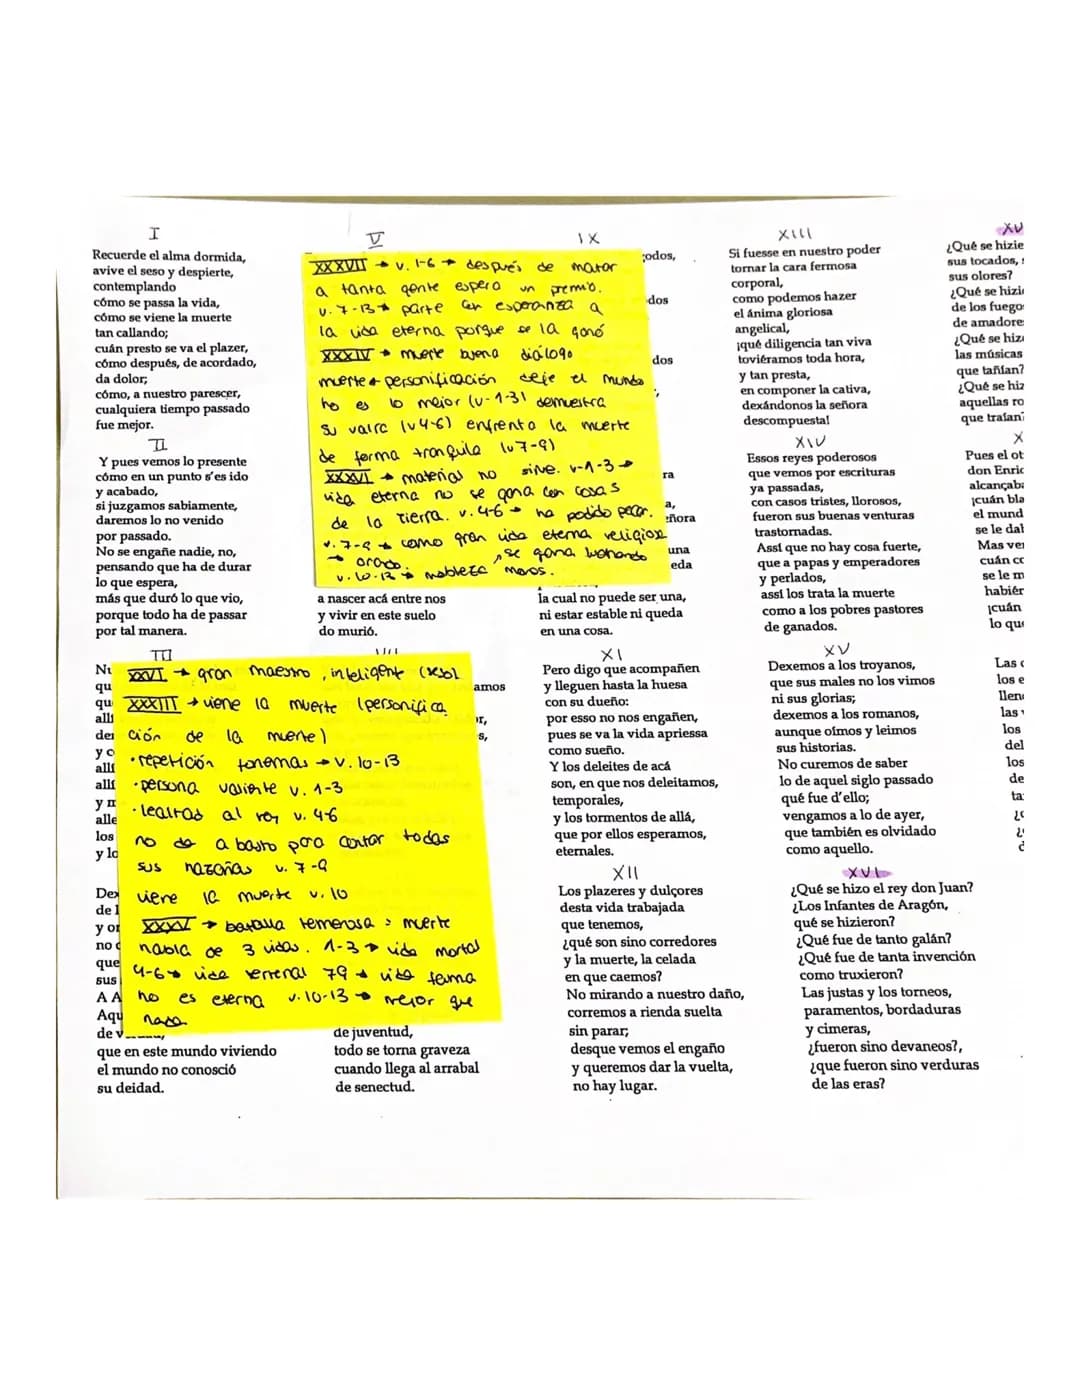 I
Recuerde el alma dormida,
avive el seso y despierte,
contemplando
cómo se passa la vida,
cómo se viene la muerte
tan callando;
cuán presto se va el plazer,
cómo después, de acordado,
da dolor;
cómo, a nuestro parescer,
cualquiera tiempo passado
fue mejor.
II
Y pues vemos lo presente
cómo en un punto s'es ido
y acabado,
si juzgamos sabiamente,
daremos lo no venido
por passado.
No se engañe nadie, no,
pensando que ha de durar
lo que espera,
más que duró lo que vio,
porque todo ha de passar
por tal manera.
III
que en este mundo viviendo
el mundo no conosció
su deidad.
XXVI → gran maestro, inteligent (seso)
XXXIII → viene la muerte (personifica
ción de la muerte)
• repetición fonemas → v. 10-13
• persona valiente v. 1-3
• lealtad al rey v. 4-6
no da a basto para contar todas
sus hazañas v. 7-9
viene la muerte v. 10
XXXV → batalla temerosa muerte
habla de 3 vidas. 1-3 → vida mortal
4-6 → vida terrenal 79 → vida fama
no es eterna v. 10-13 → mejor que
nada.
V
XXXVII → v. 1-6 → después de matar
a tanta gente espera un premio.
v. 7-13 → parte con esperanza a
la vida eterna porque se la ganó
XXXIV → muerte buena diálogo
muerte → personificación deje el mundo
no es lo mejor (v-1-3) demuestra
su valía (v4-6) enfrenta la muerte
de forma tranquila (v7-9)
XXXVI → materias no sirve. v-1-3 →
vida eterna no se gana con cosas
de la tierra. v. 4-6 → ha podido pecar.
v. 7-9 → como gran vida eterna religioso
→ orado. se gana luchando
v. 10-12 → nobleza moros.
a nascer acá entre nos
y vivir en este suelo
do murió.
amos
de juventud,
todo se torna graveza
cuando llega al arrabal
de senectud.
IX
la cual no puede ser una,
ni estar estable ni queda
en una cosa.
XI
Pero digo que acompañen
y lleguen hasta la huesa
con su dueño:
por esso no nos engañen,
pues se va la vida apriessa
como sueño.
Y los deleites de acá
son, en que nos deleitamos,
temporales,
y los tormentos de allá,
que por ellos esperamos,
eternales.
XII
Los plazeres y dulçores
desta vida trabajada
que tenemos,
¿qué son sino corredores
y la muerte, la celada
en que caemos?
No mirando a nuestro daño,
corremos a rienda suelta
sin parar;
desque vemos el engaño
y queremos dar la vuelta,
no hay lugar.
XIII
Si fuesse en nuestro poder
tornar la cara fermosa
corporal,
como podemos hazer
el ánima gloriosa
angelical,
¡qué diligencia tan viva
toviéramos toda hora,
y tan presta,
en componer la cativa,
dexándonos la señora
descompuesta!
XIV
Essos reyes poderosos
que vemos por escrituras
ya passadas,
con casos tristes, llorosos,
fueron sus buenas venturas
trastornadas.
Assí que no hay cosa fuerte,
que a papas y emperadores
y perlados,
assí los trata la muerte
como a los pobres pastores
de ganados.
XV
Dexemos a los troyanos,
que sus males no los vimos
ni sus glorias;
dexemos a los romanos,
aunque oímos y leimos
sus historias.
No curemos de saber
lo de aquel siglo passado
qué fue d'ello;
vengamos a lo de ayer,
que también es olvidado
como aquello.
XVI
¿Qué se hizo el rey don Juan?
¿Los Infantes de Aragón,
qué se hizieron?
¿Qué fue de tanto galán?
¿Qué fue de tanta invención
como truxieron?
Las justas y los torneos,
paramentos, bordaduras
y cimeras,
¿fueron sino devaneos?,
¿que fueron sino verduras
de las eras?
XV
¿Qué se hizie
sus tocados,
sus olores?
¿Qué se hizi
de los fuego
de amadore
¿Qué se hiz
las músicas
que tañían?
¿Qué se hiz
aquellas ro
que traían
X
Pues el ot
don Enric
alcançaba
¡cuán bla
el mund
se le dab
Mas ver
cuán co
se le m
habiér
¡cuán
lo que